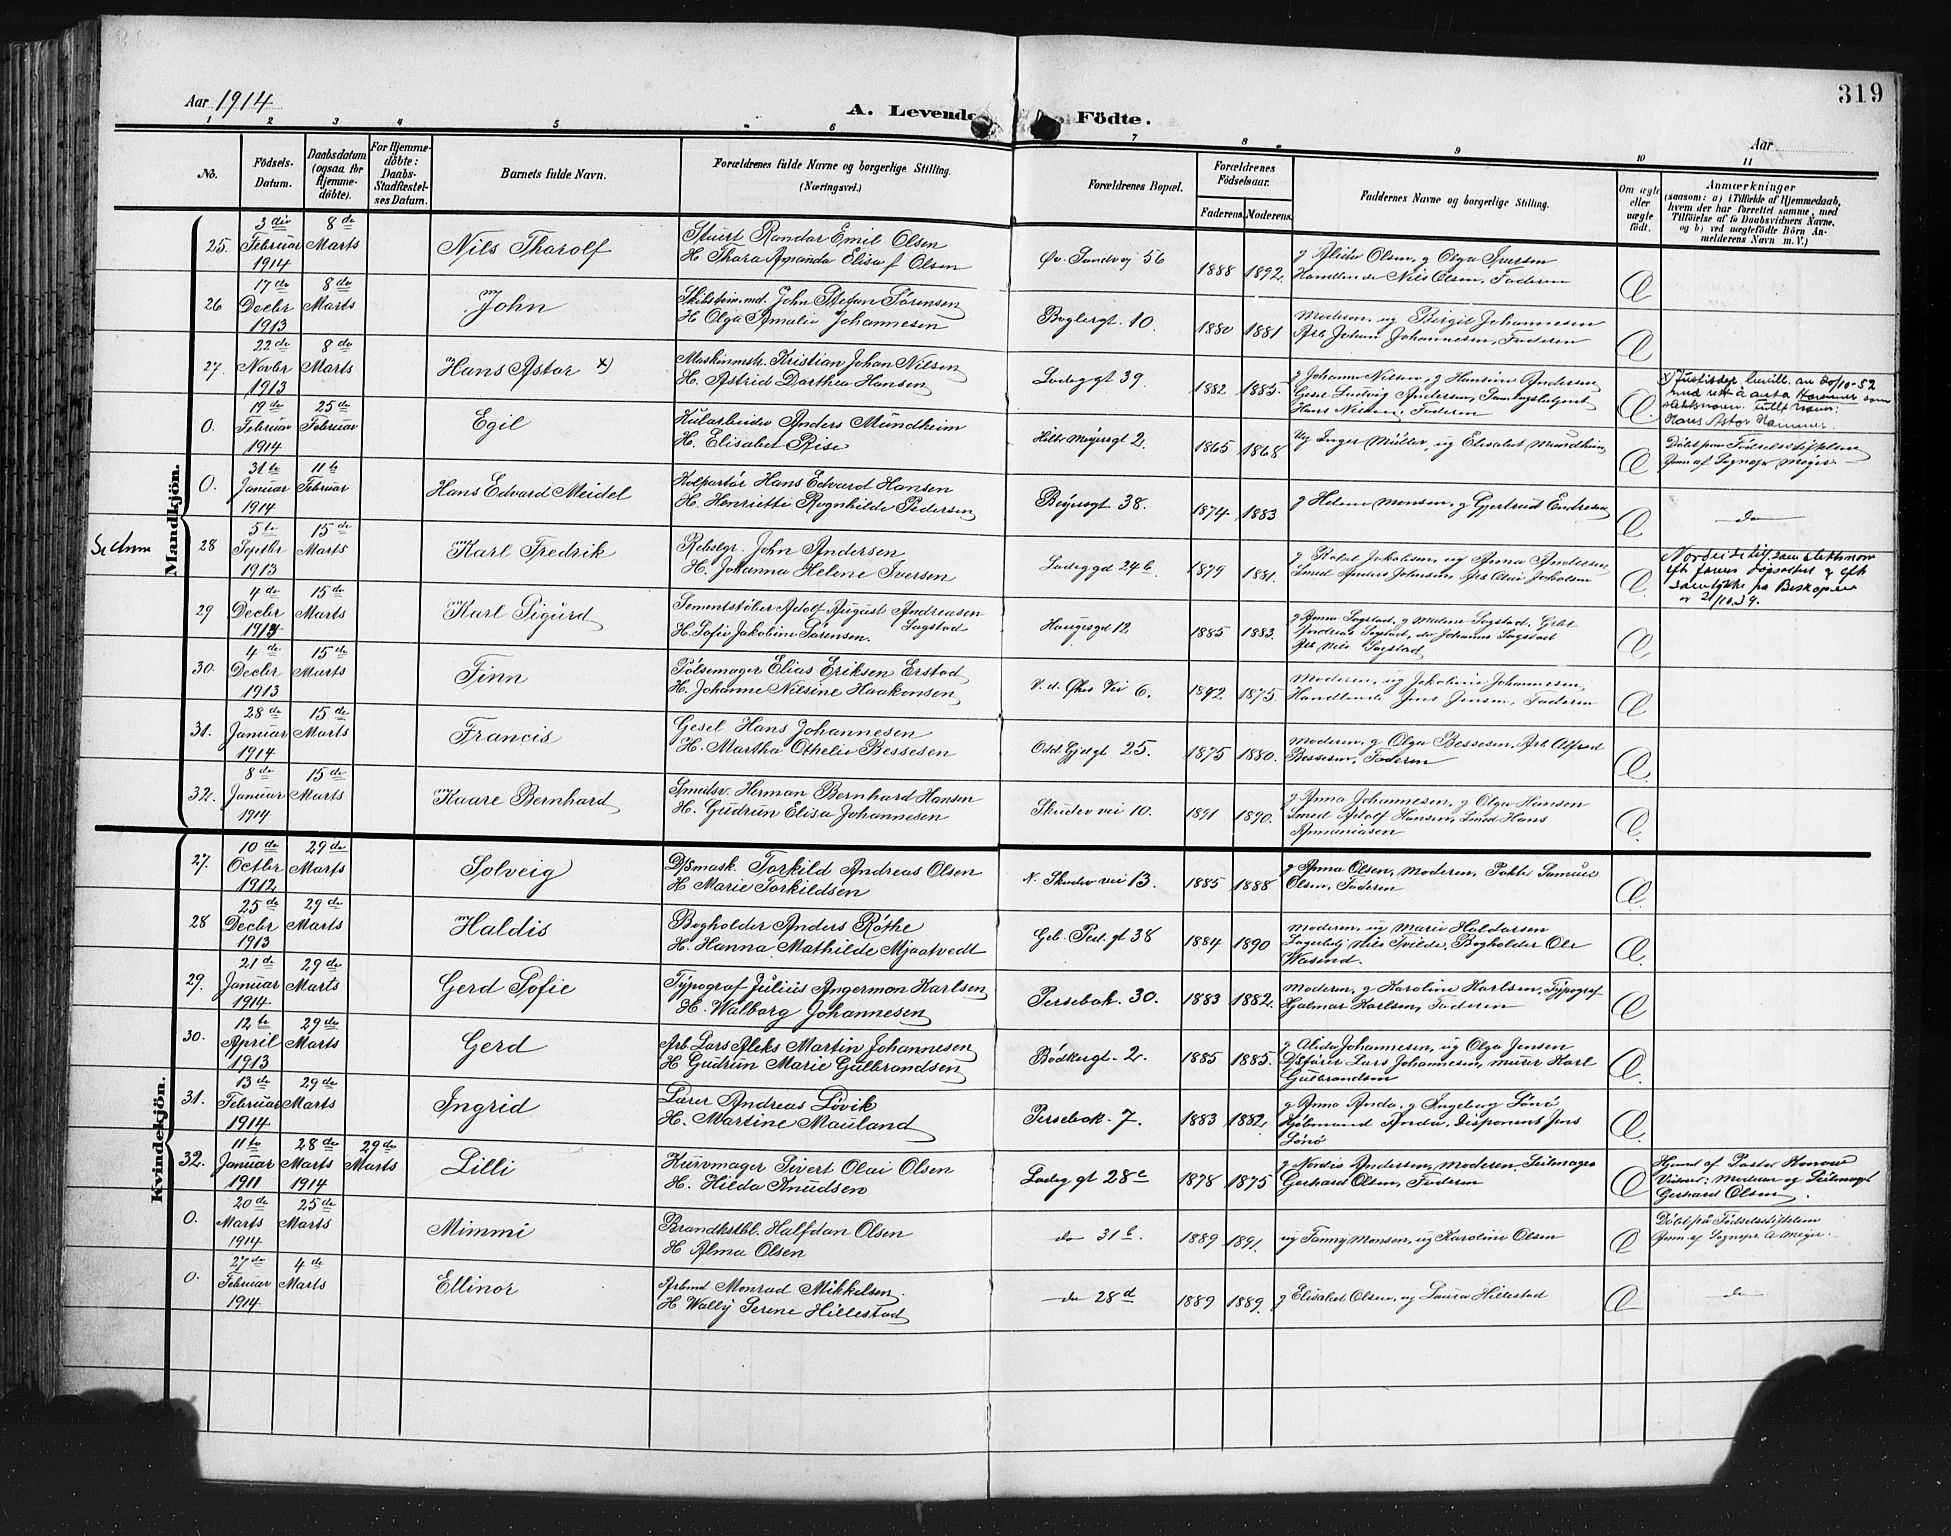 319
Aar 1914
A. Levende Födte.
Aar
1 2 3 4 5 6 7 8 9 10 11
No.
Födsels-Datum.
Daabsdatum (ogsaa for Hjemmedöbte).
For Hjemmedöbte: Daabs-Stadfæstelses Datum.
Barnets fulde Navn.
Forældrenes fulde Navne og borgerlige Stilling. (Næringsvei.)
Forældrenes Bopæl.
Forældrenes Födselsaar.
Faderens. Moderens.
Faddernes Navne og borgerlige Stilling.
Om ægte eller uægte födt.
Anmærkninger (saasom: a) i Tilfælde af Hjemmedaab, hvem der har forrettet samme, med Tilföielse af to Daabsvidners Navne, og b) ved uægtefödte Börn Anmelderens Navn m. V.)
Mandkjön.
25. 3die Februar 1914 8de Marts Nils Tharolf
Stuert Randar Emil Olsen
H. Thara Amanda Elisa f Olsen
Øv. Sandvg 56 1888 1892.
g Alida Olsen, g Olga Iversen
Handlende Nils Olsen, Faderen
26 17de Decbr 1913 8de Marts John
Skibstøm.md. John Stefan Sørensen
H Olga Amalie Johannesen
Boglergt. 10. 1880 1881
Moderen, ug Birgit Johannesen
Arb Johan Johannesen, Faderen
27. 22de Novbr 1913 8de Marts Hans Astor x)
Maskinmstr. Kristian Johan Nilsen
H. Astrid Dorthea Hansen
Ladeg gt 39. 1882 1885.
g Johanne Nilsen, g Hansine Andersen
Gesel Ludvig Andersen,
Hans Nilsen, Faderen
x) Justisdep. bevill. av 20/10-52
med rett å anta Hammer som
slektsnavn. Fullt navn:
Hans Astor Hammer.
0. 19de Februar 1914 25de Februar Egil
Kularbeider Anders Mundheim
H. Elisabet Rise
Holb Meyersgt 2. 1865 1868
Ug Inger Müller, ug Elisabet Mundheim
Døbt paa Fødselsstiftelsen
Anm af Sognepr Meyer.
0. 31te Januar 1914 11te Februar Hans Edvard Meidel
Kolportør Hans Edvard Hansen
H. Henriette Ragnhilde Pedersen
Bøgersgt 38. 1874 1883
g Helene Monsen, g Gjertrud Endresen
do
28 5te Septbr 1913 15de Marts Karl Fredrik
Rebslgr. John Andersen
H. Johanna Helene Iversen
Ladeg gd 24b. 1879 1881.
g Rakel Jakobsen, ug Anna Andersen
Smed Anders Johnsen, Arb Olai Jakobsen
Nordeide til som slektsnavn
29 4de Decbr 1913 15de Marts Karl Sigurd
Sementstøber Adolf August Andreasen Sagstad
H. Sofie Jakobine Sørensen.
Haugesgd 12 1885 1883.
g Anna Sagstad, g Malene Sagstad, Gsbt
Andreas Sagstad, do Johannes Sagstad
Arb Nils Sagstad
30. 4de Decbr 1913 15de Marts Finn
Pølsemager Elias Eriksen Erstad
H. Johanne Nilsine Haakonsen
V. d. Ohus Vei 6. 1872 1875.
Moderen, ug Jakobine Johannesen
Handlende Jens Jensen, Faderen
31. 28de Januar 1914 15de Marts Francis
Gesel Hans Johannesen
H. Martha Othelie Bessesen
Odd Gjelgt 25. 1875 1880.
Moderen, g Olga Bessesen, Arb Alfred
Bessesen, Faderen
32. 8de Januar 1914 15de Marts Kaare Bernhard
Smedsv. Herman Bernhard Hansen
H. Gudrun Elisa Johannesen
Skudev vei 10. 1891 1890.
g Anna Johannesen, g Olga Hansen
Smed Adolf Hansen, Smed Hans
Ananiasen
Kvindekjön.
27. 10de Octbr 1912 29de Marts Solveig
D/Smask. Torkild Andreas Olsen
H Marie Torkildsen
N. Skudev vei 13. 1885 1888
g Anna Olsen, Moderen, Samuel
Olsen, Faderen
28 25de Decbr 1913 29de Marts Haldis
Bogholder Anders Røthe
H. Hanna Mathilde Mjaatvedt
Geb. Ped. gt 38 1884 1890
Moderen, ug Marie Haldorsen
Lagerbetj Nils Tvilde, Bogholder Ole
Wasend.
29. 21de Januar 1914 29de Marts Gerd Sofie
Typograf Julius Angerman Karlsen
H. Walborg Johannesen
Persebak. 30. 1883 1882.
Moderen, g Karoline Karlsen, Typograf
Hjalmar Karlsen, Faderen
30. 12te April 1913 29de Marts Gerd
Arb. Lars Aleks Martin Johannesen
H Gudrun Marie Gulbrandsen
Bødkergt. 2. 1885 1885.
g Alida Johannesen, ug Olga Jensen
D/Sfører Lars Johannesen, murer Karl
Gulbrandsen
31. 13de Februar 1914 29de Marts Ingrid
Lærer Andreas Løvik
H. Martine Mauland
Persebak. 7. 1883 1882.
g Anna Anda, g Ingeborg Sønø
Kjøbmand Anda, Disponent Jens
Sønø
32. 11te Januar 1911 28de Marts 1914 29de Marts Lilli
Kurvmager Sivert Olai Olsen
H. Hilda Knudsen
Ladeg gt 28c 1878 1875
g Nordis Andersen, Moderen, Seilmager
Gerhard Olsen, Faderen
Hjmd af Pastor Honoré
Vidner: Moderen og Seilmager
Gerhard Olsen.
0. 20de Marts 1914 25de Marts Mimmi
Brandkstbl. Halfdan Olsen
H Alma Olsen
do 31b. 1889 1891.
ug Fanny Monsen, ug Karoline Olsen
Døbt på Fødselsstiftelsen
Anm af Sognepr. A Meyer.
0. 27de Februar 1914 4de Marts Ellinor
Arbmd Monrad Mikkelsen.
H Wally Serene Hillestad
do 28d 1889 1889.
g Elisabet Olsen, ug Laura Hillestad
do